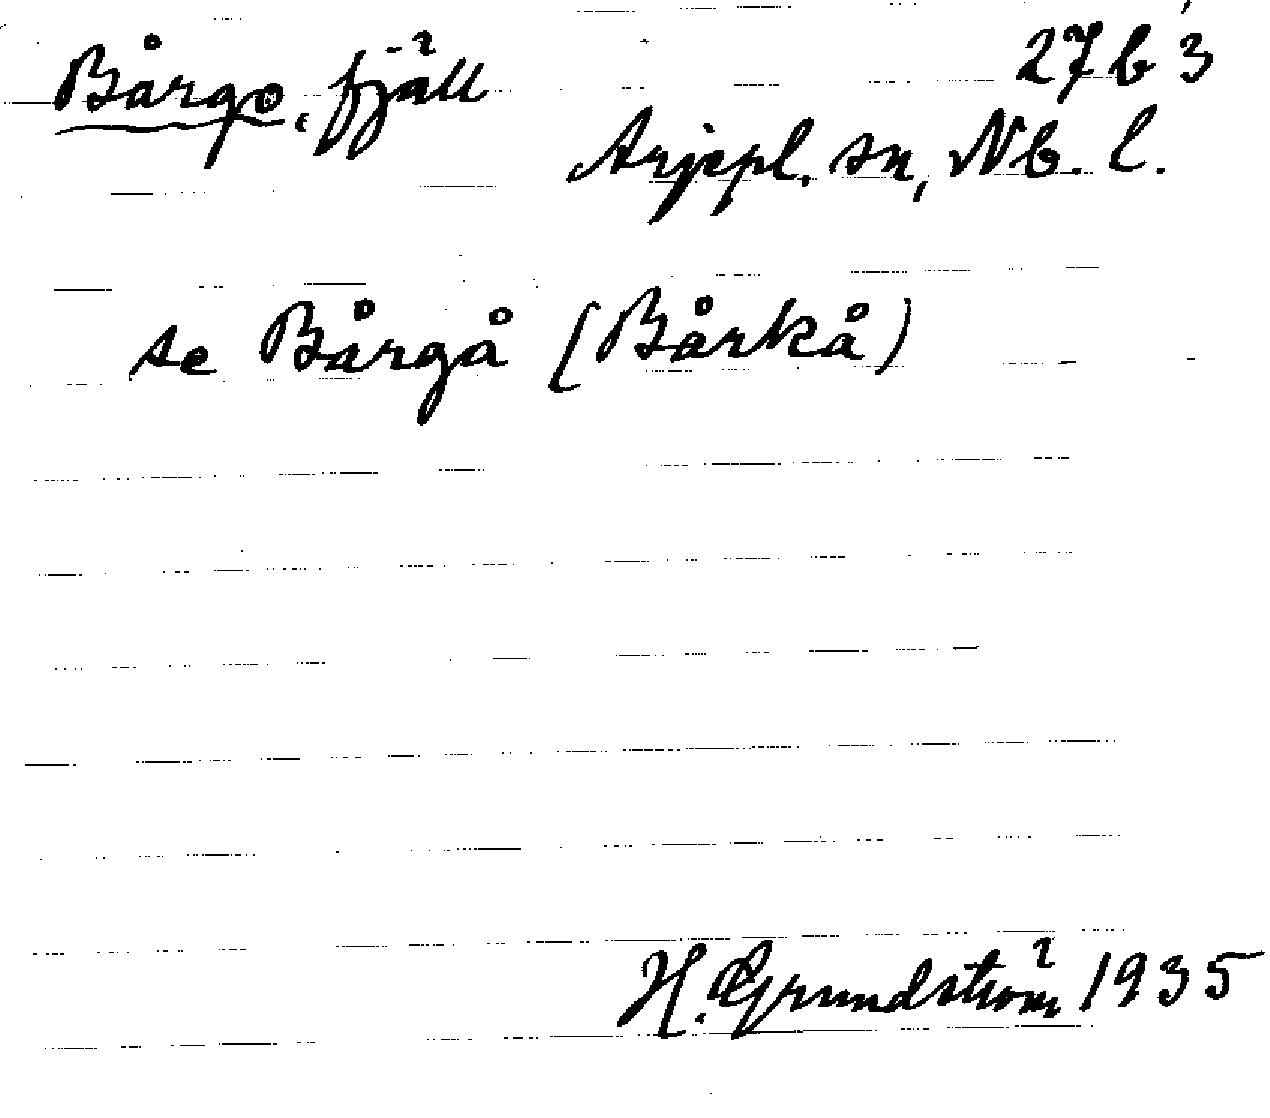 Bårgo, fjäll
27 b 3
Arjepl. sn, Nb. l.
se Bårgå (Bårkå)
H. Grundström 1935